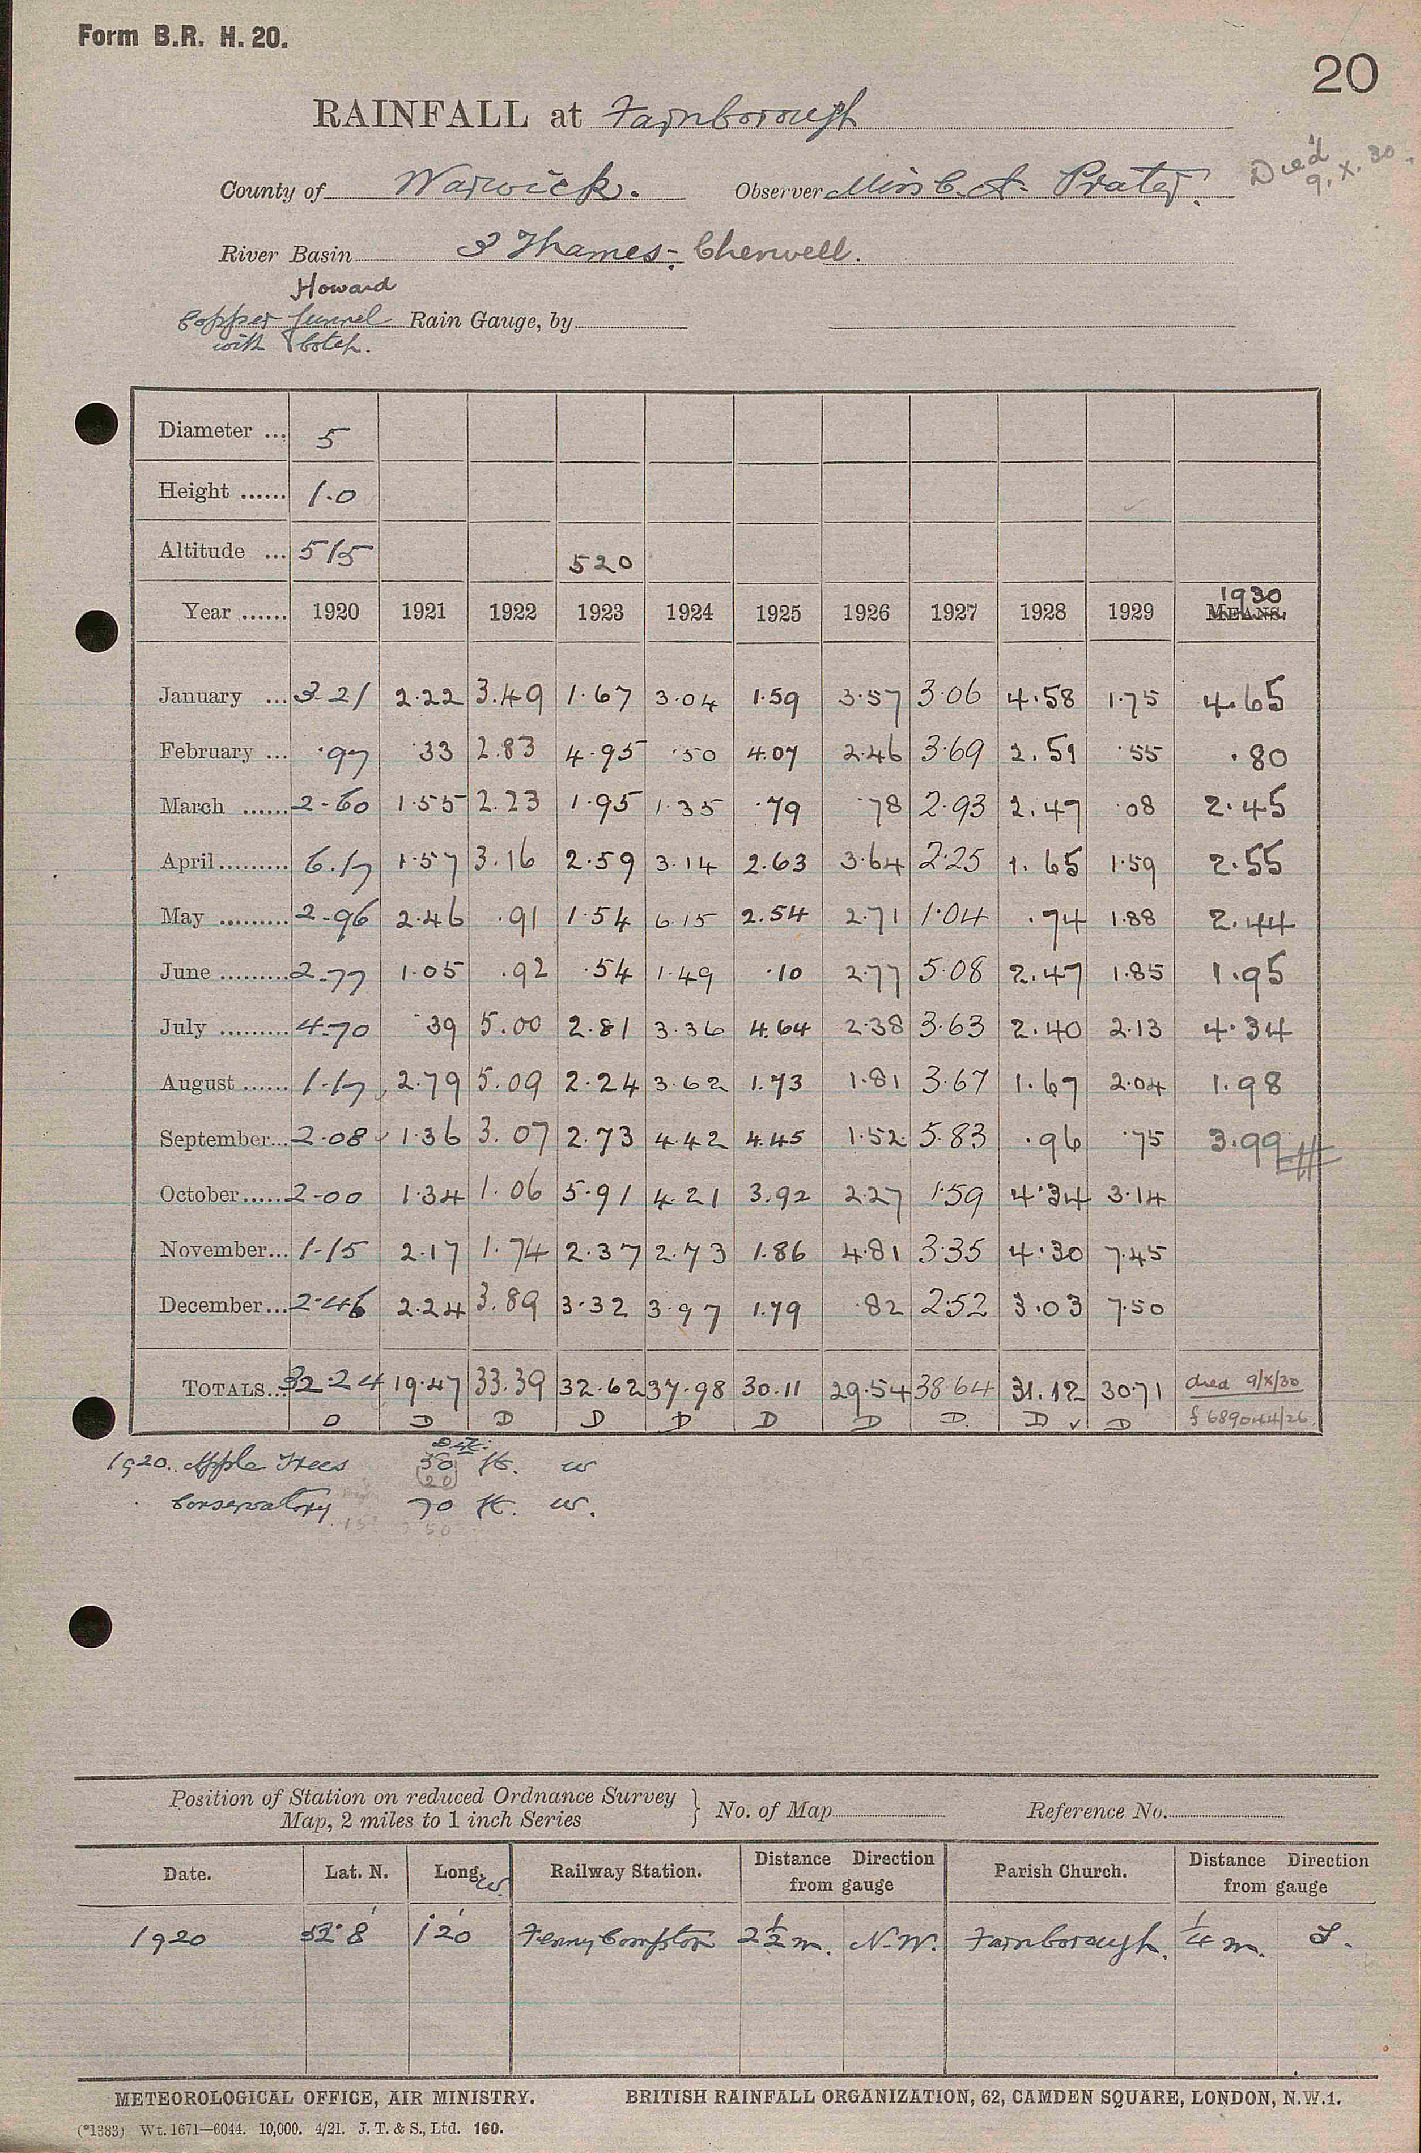 Form B.R. H. 20.
20
RAINFALL at Farnborough
Died 9.X.30.
County of Warwick. Observer Miss C. A. Prater.
River Basin 3 Thames - Cherwell.
Howard
Copper funnel Rain Gauge, by
with bottle.
Diameter ... 5
Height ...... 1.0
Altitude ... 515 520
Year ...... 1920 1921 1922 1923 1924 1925 1926 1927 1928 1929 MEANS. 1930
January ... 3.21 2.22 3.49 1.67 3.04 1.59 3.57 3.06 4.58 1.75 4.65
February ... .97 .33 2.83 4.95 .50 4.07 2.46 3.69 2.51 .55 .80
March ...... 2.60 1.55 2.23 1.95 1.35 .79 .78 2.93 2.47 .08 2.45
April ......... 6.17 1.57 3.16 2.59 3.14 2.63 3.64 2.25 1.65 1.59 2.55
May ......... 2.96 2.46 .91 1.54 6.15 2.54 2.71 1.04 .74 1.88 2.44
June ......... 2.77 1.05 .92 .54 1.49 .10 2.77 5.08 2.47 1.85 1.95
July ......... 4.70 .39 5.00 2.81 3.36 4.64 2.38 3.63 2.40 2.13 4.34
August ...... 1.17 2.79 5.09 2.24 3.62 1.73 1.81 3.67 1.67 2.04 1.98
September... 2.08 1.36 3.07 2.73 4.42 4.45 1.52 5.83 .96 .75 3.99
October ...... 2.00 1.34 1.06 5.91 4.21 3.92 2.27 1.59 4.34 3.14
November... 1.15 2.17 1.74 2.37 2.73 1.86 4.81 3.35 4.30 7.45
December... 2.46 2.24 3.89 3.32 3.97 1.79 .82 2.52 3.03 7.50
TOTALS... 32.24 19.47 33.39 32.62 37.98 30.11 29.54 38.64 31.12 30.71 died 9/X/30
D D D D D D D D D D
1920. Apple Trees 50 ft. W
(20)
Conservatory 70 ft. W.
Position of Station on reduced Ordnance Survey
Map, 2 miles to 1 inch Series } No. of Map Reference No.
Date. Lat. N. Long. W. Railway Station. Distance Direction from gauge Parish Church. Distance Direction from gauge
1920 52° 8' 1° 20' Fenny Compton 2½ m. N.W. Farnborough. ¼ m. S.
METEOROLOGICAL OFFICE, AIR MINISTRY. BRITISH RAINFALL ORGANIZATION, 62, CAMDEN SQUARE, LONDON, N.W.1.
(*1383) Wt. 1671—6044. 10,000. 4/21. J. T. & S., Ltd. 160.